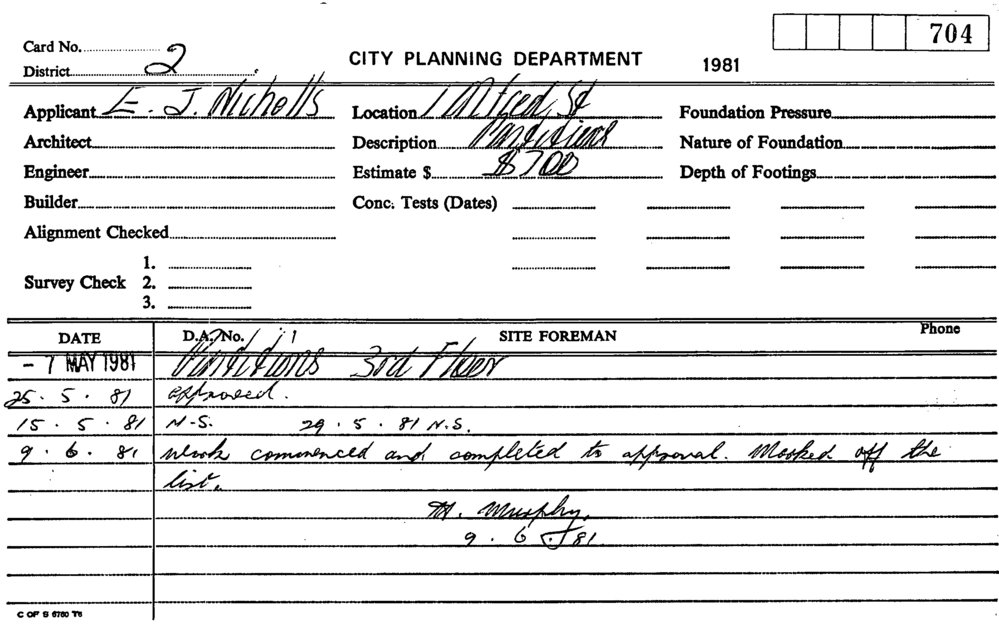 704
Card No.
District 2
CITY PLANNING DEPARTMENT 1981
Applicant E. J. Nicholls Location 1 Alfred St Foundation Pressure
Architect Description Partitions Nature of Foundation
Engineer Estimate $ $700 Depth of Footings
Builder Conc. Tests (Dates)
Alignment Checked
1.
Survey Check 2.
3.
DATE D.A. No. SITE FOREMAN Phone
- 7 MAY 1981 Partitions 3rd Floor
25. 5. 81 approved.
15. 5. 81 N.S. 29. 5. 81 N.S.
9. 6. 81 Work commenced and completed to approval. Marked off the
list.
M. Murphy.
9. 6. 81
C OF S 6760 T6